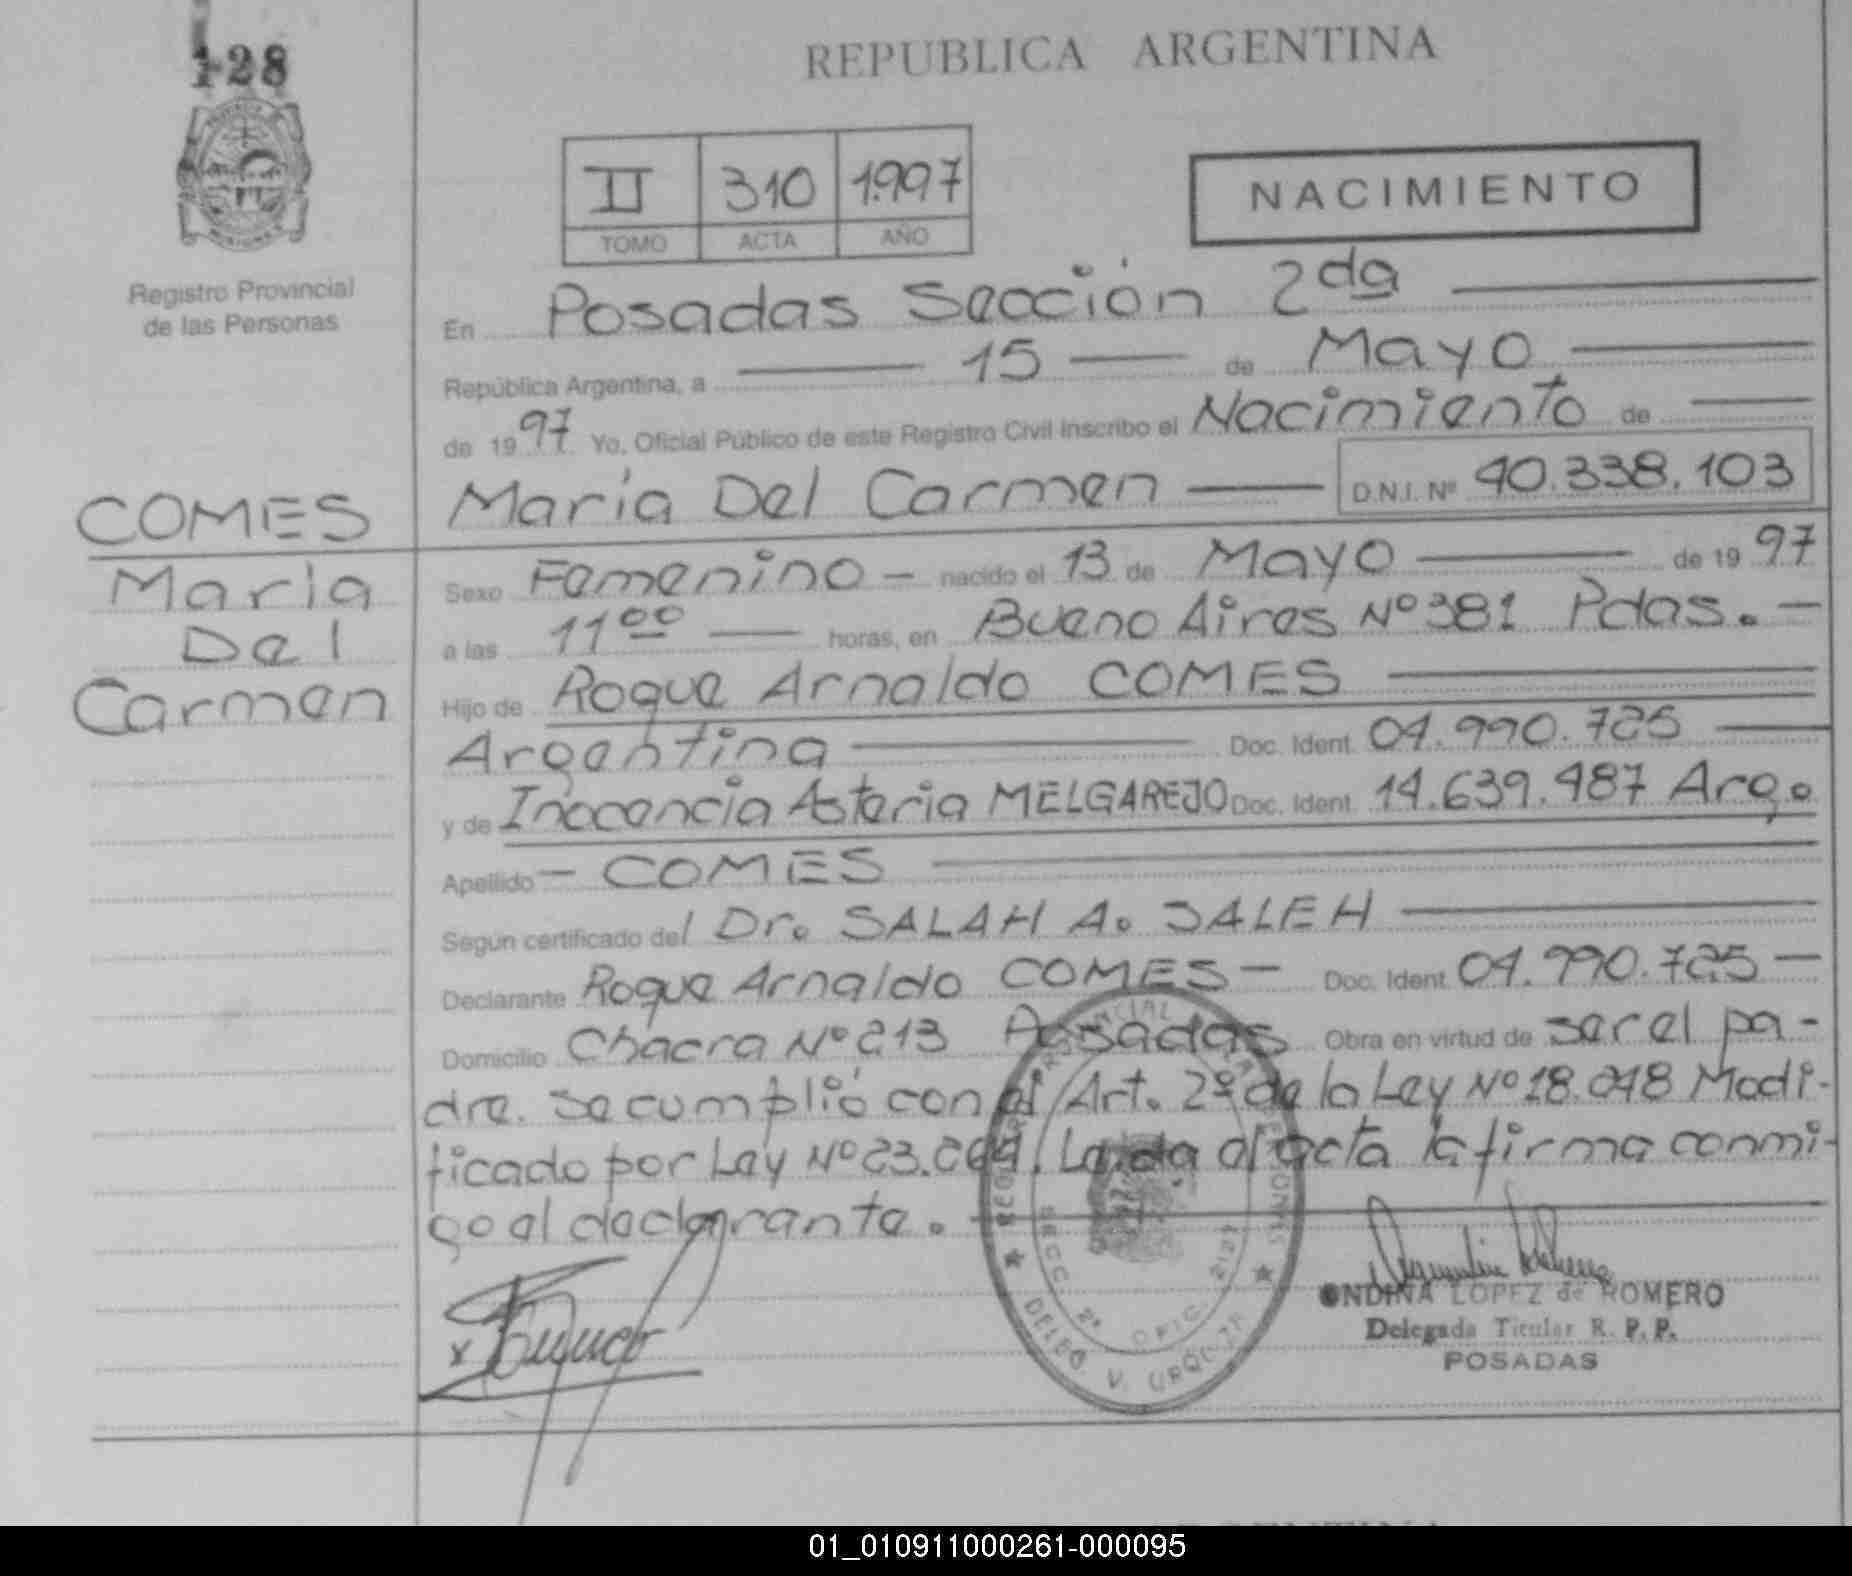 128
REPUBLICA ARGENTINA
II 310 1.997
TOMO ACTA AÑO
NACIMIENTO
Registro Provincial
de las Personas
En Posadas Sección 2da
República Argentina, a 15 de Mayo
de 1997 Yo, Oficial Público de este Registro Civil inscribo el Nacimiento de
María Del Carmen D.N.I. Nº 40.338.103
COMES
María
Del
Carmen
Sexo Femenino nacido el 13 de Mayo de 1997
a las 11 00 horas, en Bueno Aires Nº 381 Pdas.
Hijo de Roque Arnaldo COMES
Argentina Doc. Ident. 04.990.725
y de Inocencia Asteria MELGAREJO Doc. Ident. 14.639.487 Arg.
Apellido COMES
Según certificado del Dr. SALAH A. SALEH
Declarante Roque Arnaldo COMES Doc. Ident. 04.990.725
Domicilio Chacra Nº 213 Posadas Obra en virtud de ser el pa-
dre. Se cumplió con el Art. 2º de la Ley Nº 18.248 Modi-
ficado por Ley Nº 23.264. Leída el acta la firma conmi-
go el declarante.
SECC 2ª OFIC. 2127
DELEG. V. URQUIZA
ONDINA LOPEZ de ROMERO
Delegada Titular R. P. P.
POSADAS
01_010911000261-000095